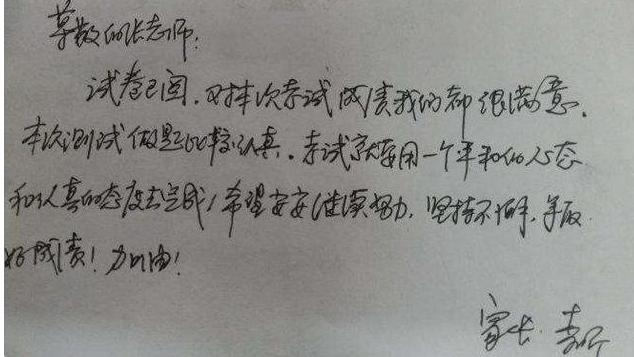 尊敬的张老师:
试卷已阅.对本次考试成责我们都很满意.
本次测试做题比较认真.考试就要用一个平和的心态
和认真的态度去完成!希望安安继续努力.坚持不懈.争取
好成责!加油!
家长.李